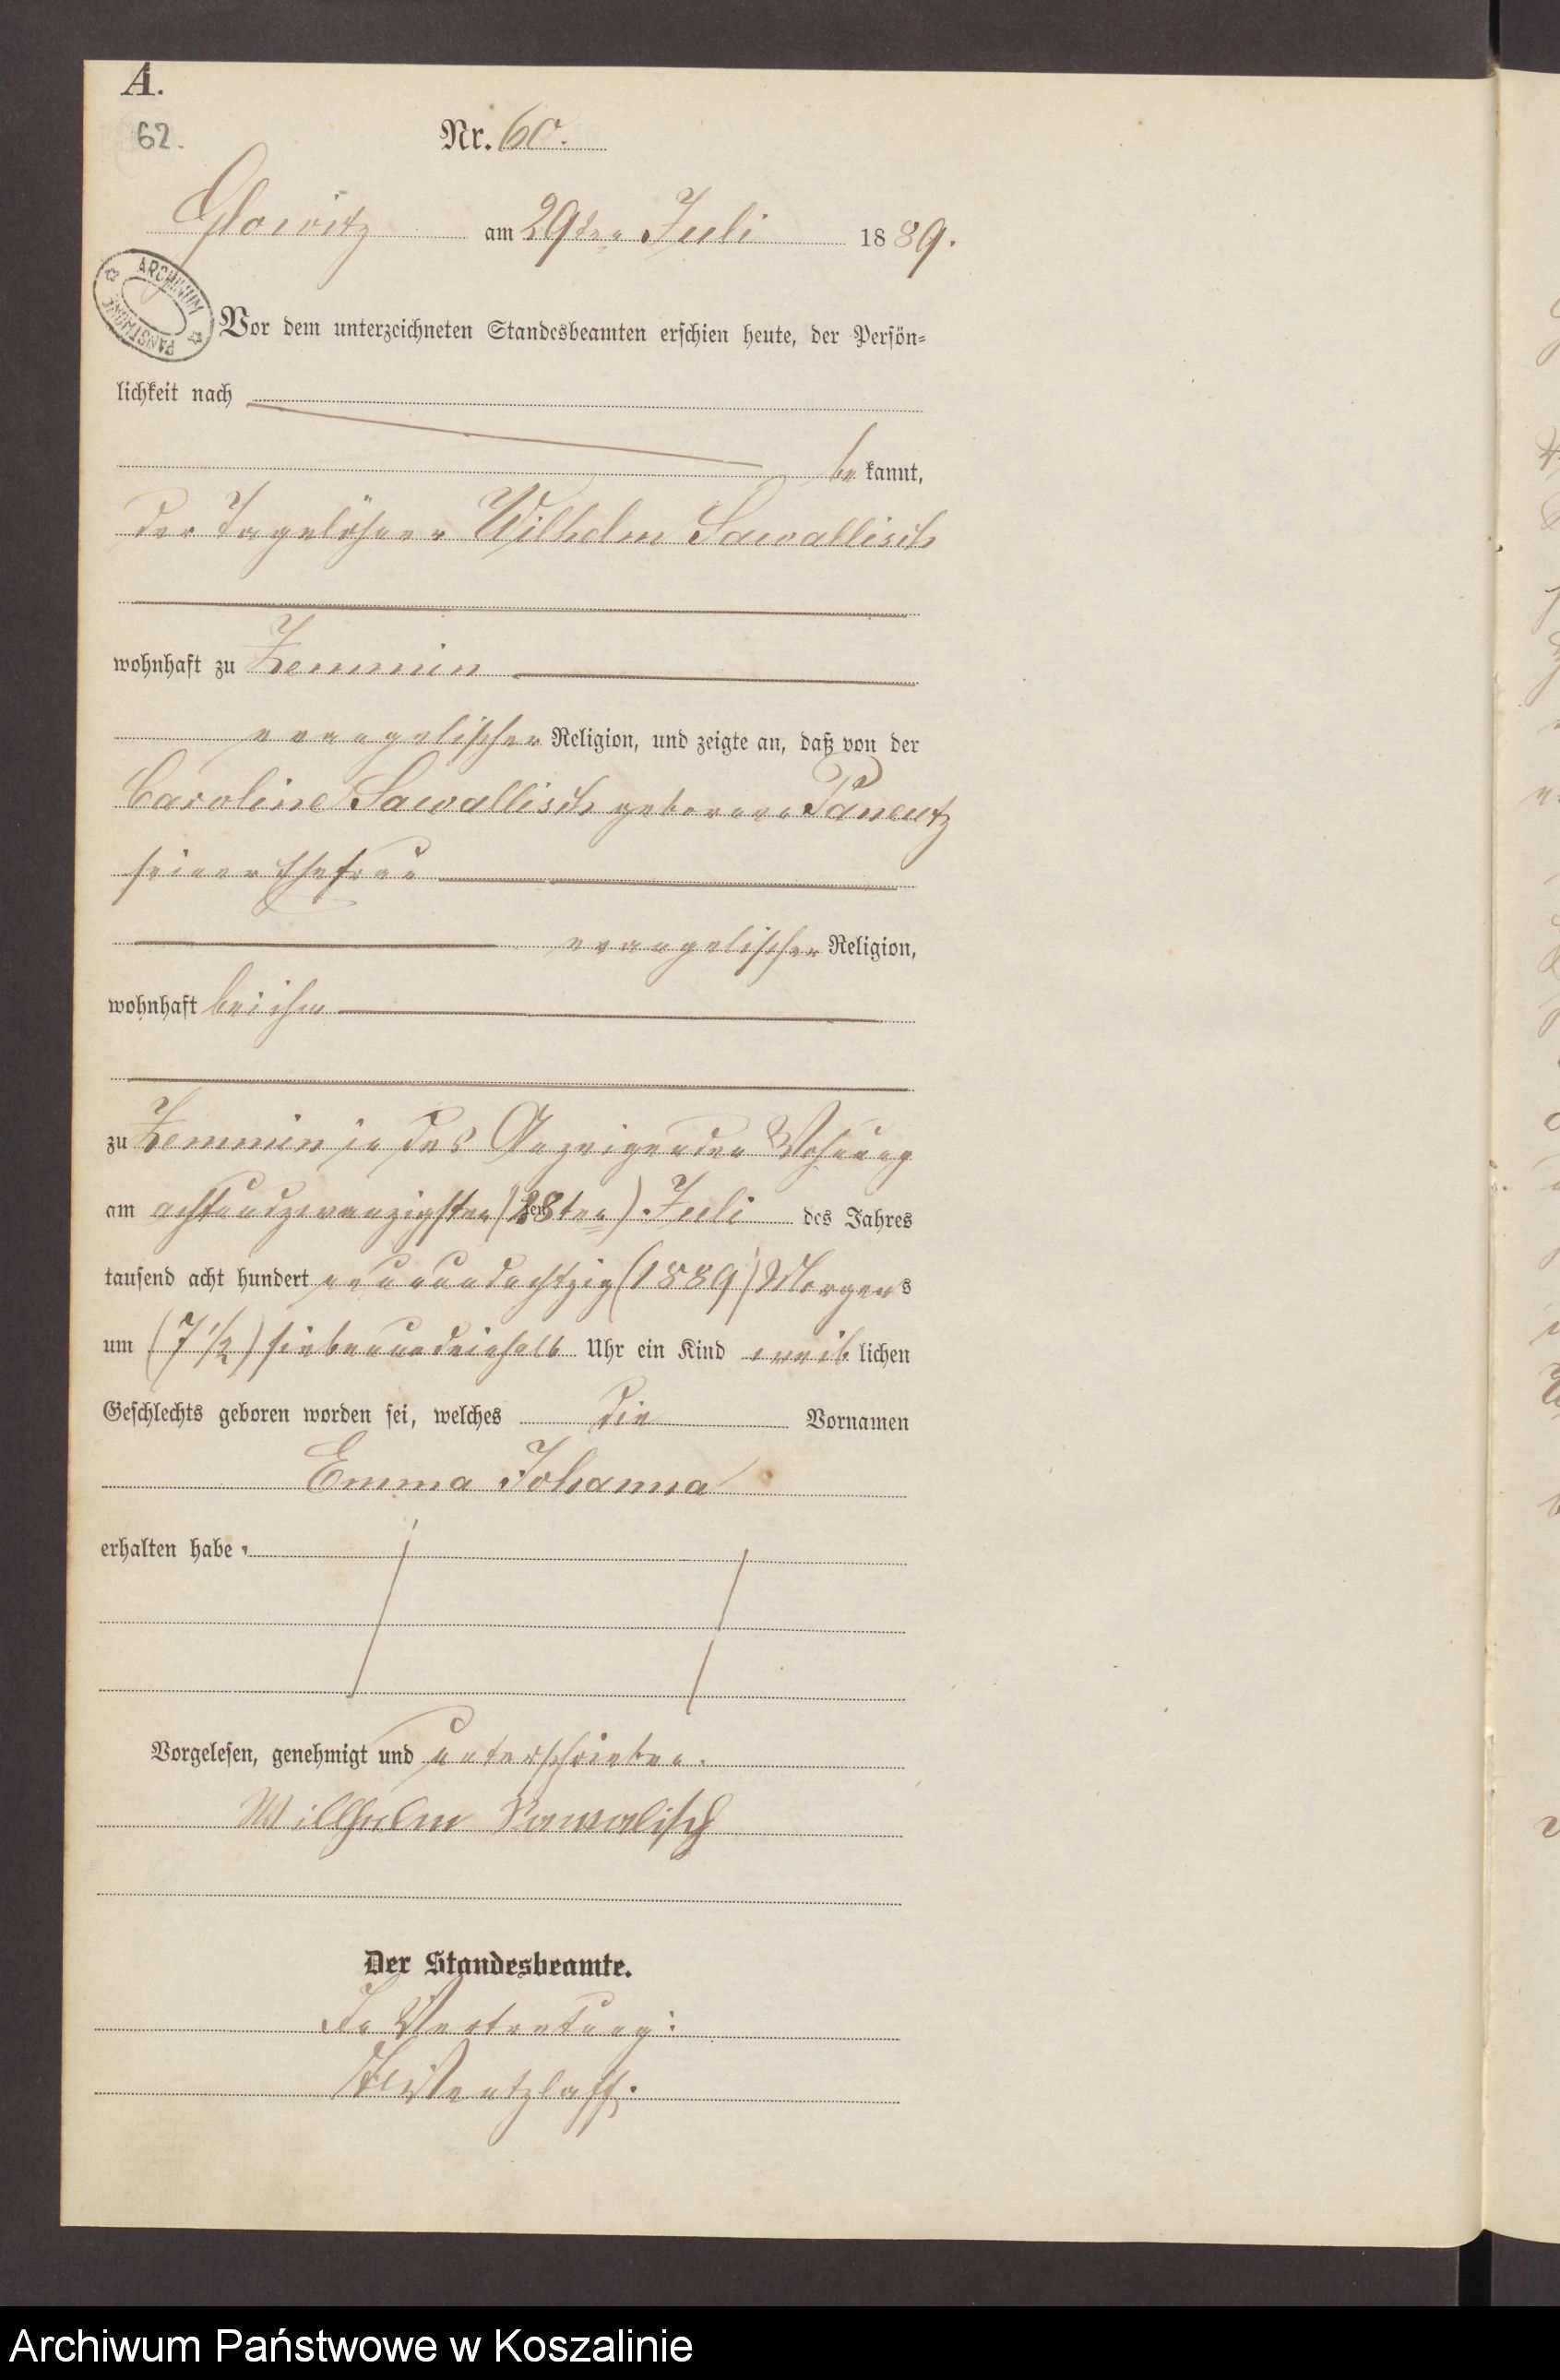 A.
62.
Nr. 60.
Glowitz am 29ten Juli 1889.
ARCHIWUM PAŃSTWOWE
Vor dem unterzeichneten Standesbeamten erschien heute, der Persön=
lichkeit nach
bekannt,
der Tagelöhner Wilhelm Sawallisch
wohnhaft zu Zemmin
evangelischer Religion, und zeigte an, daß von der
Caroline Sawallisch geborene
seiner Ehefrau
evangelischer Religion,
wohnhaft bei ihm
zu Zemmin in des Anzeigenden Wohnung
am achtundzwanzigsten (28ten) Juli des Jahres
tausend acht hundert neunundachtzig (1889) Morgens
um (7 1/2) siebenundeinhalb Uhr ein Kind weiblichen
Geschlechts geboren worden sei, welches die Vornamen
Emma Johanna
erhalten habe.
Vorgelesen, genehmigt und unterschrieben.
Willhelm Sawalisch
Der Standesbeamte.
In Vertretung:
Wentzlaff.
Archiwum Państwowe w Koszalinie